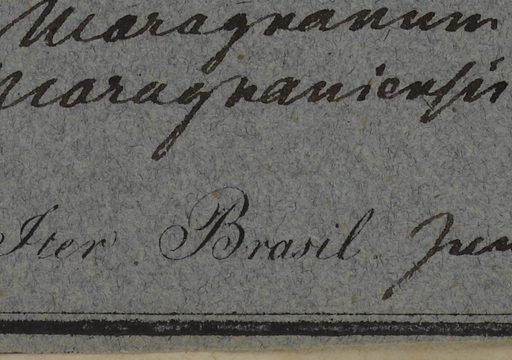 Maragnanum
Maragnaniensis
Iter Brasil. Jun